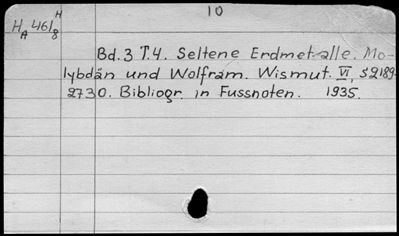 10
H
HA 461/8
Bd. 3 T. 4. Seltene Erdmetalle. Mo-
lybdän und Wolfram. Wismut. VI, S 2189-
2730. Bibliogr. in Fussnoten. 1935.